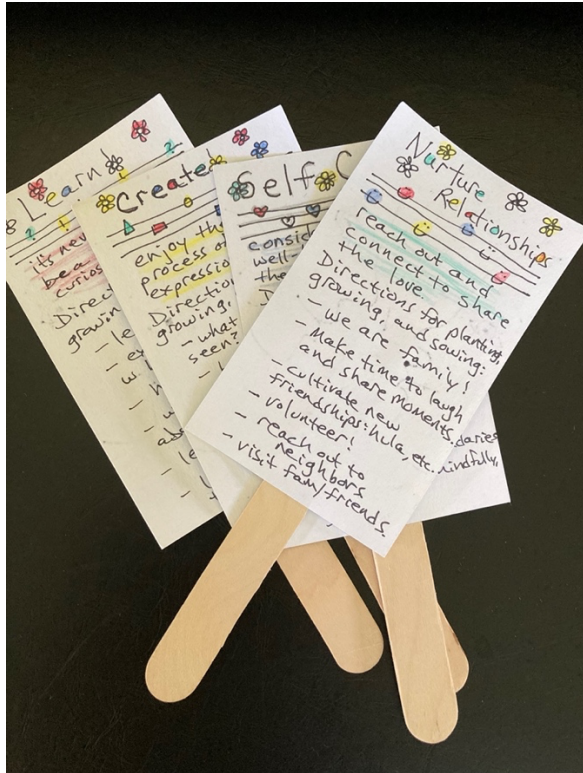 Learn!
it's nev
be a
curios
Direc
growin
- le
- ex
w
Create!
enjoy the
process of
expression
Direction
growing,
- what
seen?
Self-C
consid
well-
the
D
Nurture
Relationships
reach out and
connect to share
the love
Directions for planting,
growing, and sowing:
- we are family!
- Make time to laugh
and share moments.
- cultivate new
friendships: hula, etc.
- volunteer!
- reach out to
neighbors
- visit fam/friends.
daries
indfully,